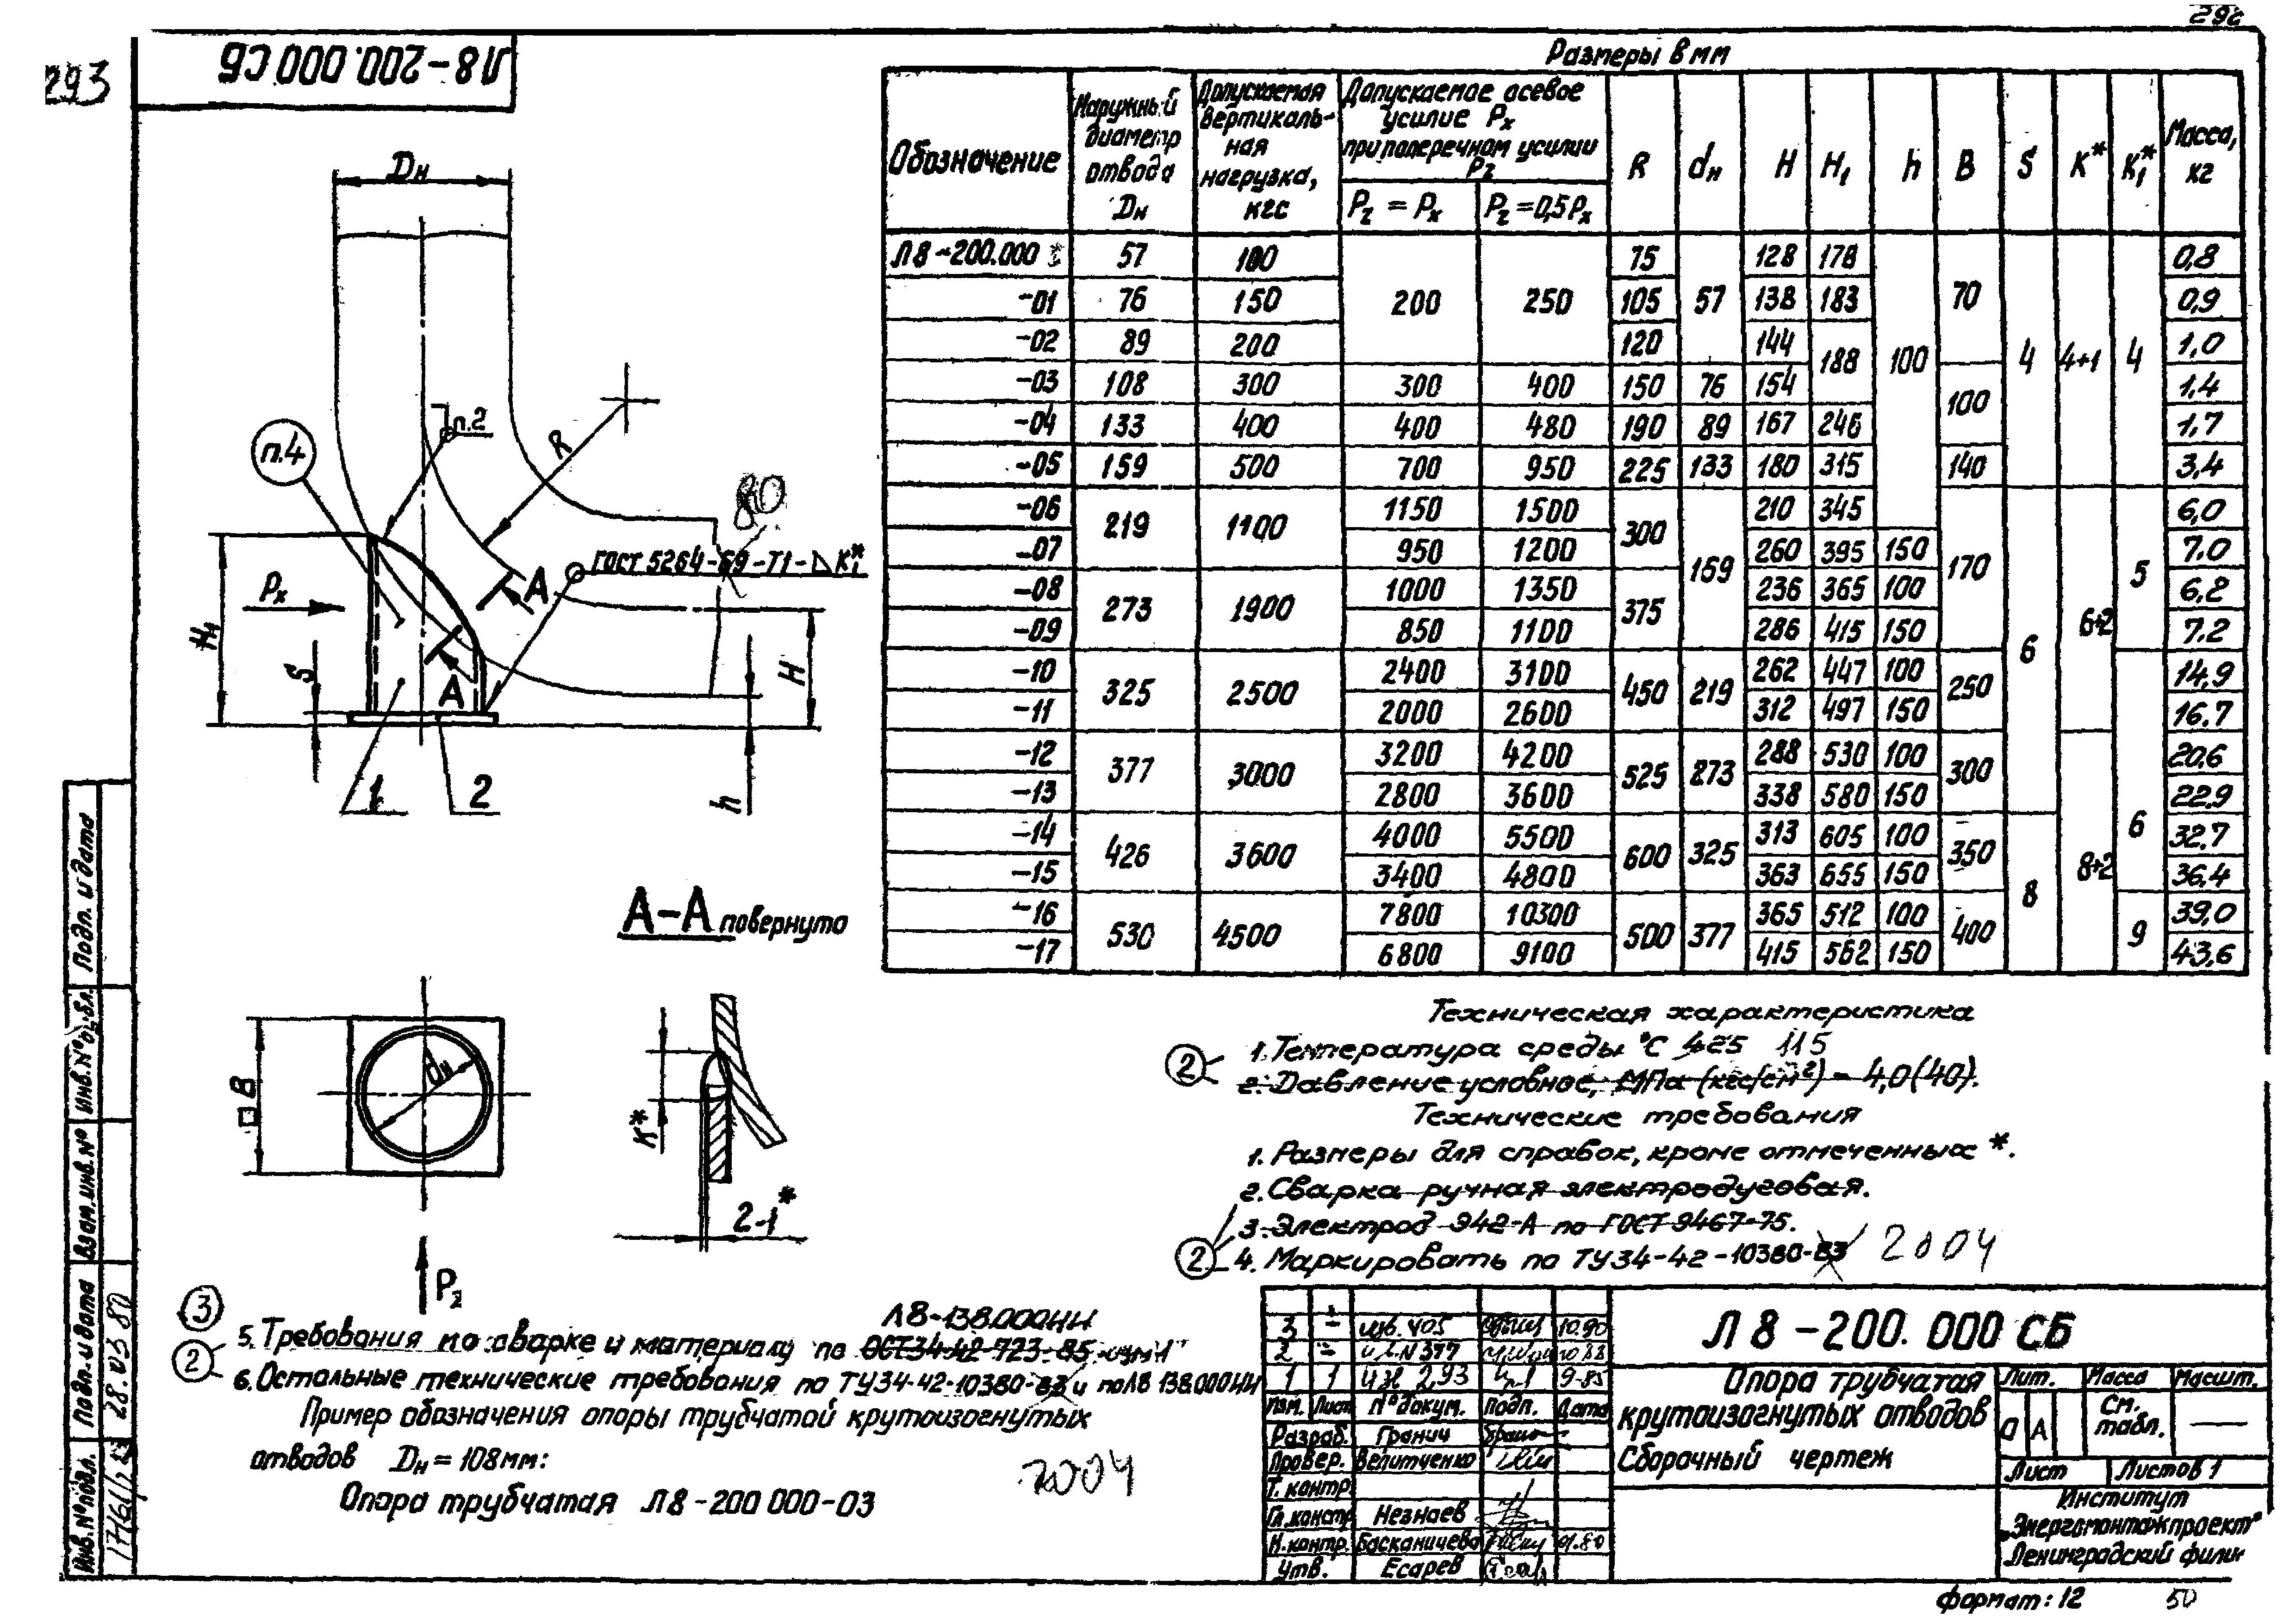 292
293
Л8-200.000 СБ
Размеры в мм
Обозначение | Наружный диаметр отвода Dн | Допускаемая вертикальная нагрузка, кгс | Допускаемое осевое усилие Px при поперечном усилии Pz | R | dн | H | H1 | h | B | S | K* | K1* | Масса, кг
Pz = Px | Pz = 0,5Px
Л8-200.000 | 57 | 100 | 200 | 250 | 75 | 57 | 128 | 178 | 100 | 70 | 4 | 4+1 | 4 | 0,8
-01 | 76 | 150 | 105 | 138 | 183 | 0,9
-02 | 89 | 200 | 120 | 144 | 188 | 1,0
-03 | 108 | 300 | 300 | 400 | 150 | 76 | 154 | 100 | 1,4
-04 | 133 | 400 | 400 | 480 | 190 | 89 | 167 | 246 | 1,7
-05 | 159 | 500 | 700 | 950 | 225 | 133 | 180 | 315 | 140 | 3,4
-06 | 219 | 1100 | 1150 | 1500 | 300 | 159 | 210 | 345 | 170 | 6 | 6+2 | 5 | 6,0
-07 | 950 | 1200 | 260 | 395 | 150 | 7.0
-08 | 273 | 1900 | 1000 | 1350 | 375 | 236 | 365 | 100 | 6,2
-09 | 850 | 1100 | 286 | 415 | 150 | 7.2
-10 | 325 | 2500 | 2400 | 3100 | 450 | 219 | 262 | 447 | 100 | 250 | 6 | 14,9
-11 | 2000 | 2600 | 312 | 497 | 150 | 16.7
-12 | 377 | 3000 | 3200 | 4200 | 525 | 273 | 288 | 530 | 100 | 300 | 8+2 | 20,6
-13 | 2800 | 3600 | 338 | 580 | 150 | 22,9
-14 | 426 | 3600 | 4000 | 5500 | 600 | 325 | 313 | 605 | 100 | 350 | 8 | 32,7
-15 | 3400 | 4800 | 363 | 655 | 150 | 36,4
-16 | 530 | 4500 | 7800 | 10300 | 500 | 377 | 365 | 512 | 100 | 400 | 9 | 39,0
-17 | 6800 | 9100 | 415 | 562 | 150 | 43,6
Dн
п.2
R
п.4
80
ГОСТ 5264-69-Т1-△ K1*
Px
А
А
H1
S
H
h
1
2
А-А повернуто
□ B
dн
K*
2-1*
Pz
Техническая характеристика
2
1. Температура среды °С 425 115
2. Давление условное, МПа (кгс/см²) - 4,0(40).
Технические требования
1. Размеры для справок, кроме отмеченных *.
2. Сварка ручная электродуговая.
3. Электрод Э42-А по ГОСТ 9467-75.
2
4. Маркировать по ТУ34-42-10380-83 2004
3
Л8-138.000ИИ
2
5. Требования по сварке и материалу по ОСТ34-42-723-85
6. Остальные технические требования по ТУ34-42-10380-83 и по Л8 138.000ИИ
Пример обозначения опоры трубчатой крутоизогнутых
отводов Dн = 108мм:
2004
Опора трубчатая Л8-200 000-03
3 | - | изв. 405 | 10.90
2 | - | N 377
1 | 1 | изв 293 | 9-85
Изм. | Лист | N° докум. | Подп. | Дата
Разраб. | Гранич
Провер. | Велитченко
Т. контр.
Гл. констр. | Незнаев
Н. контр. | Басканичева | 01.80
Утв. | Есарев
Л8-200.000 СБ
Опора трубчатая
крутоизогнутых отводов
Сборочный чертеж
Лит. | Масса | Масшт.
А | См. табл. | —
Лист | Листов 1
Институт
"Энергомонтажпроект"
Ленинградский филиал
формат: 12
50
Подп. и дата
Инв. N° дубл.
Взам. инв. N°
Подп. и дата
28.03 80
Инв. N° подл.